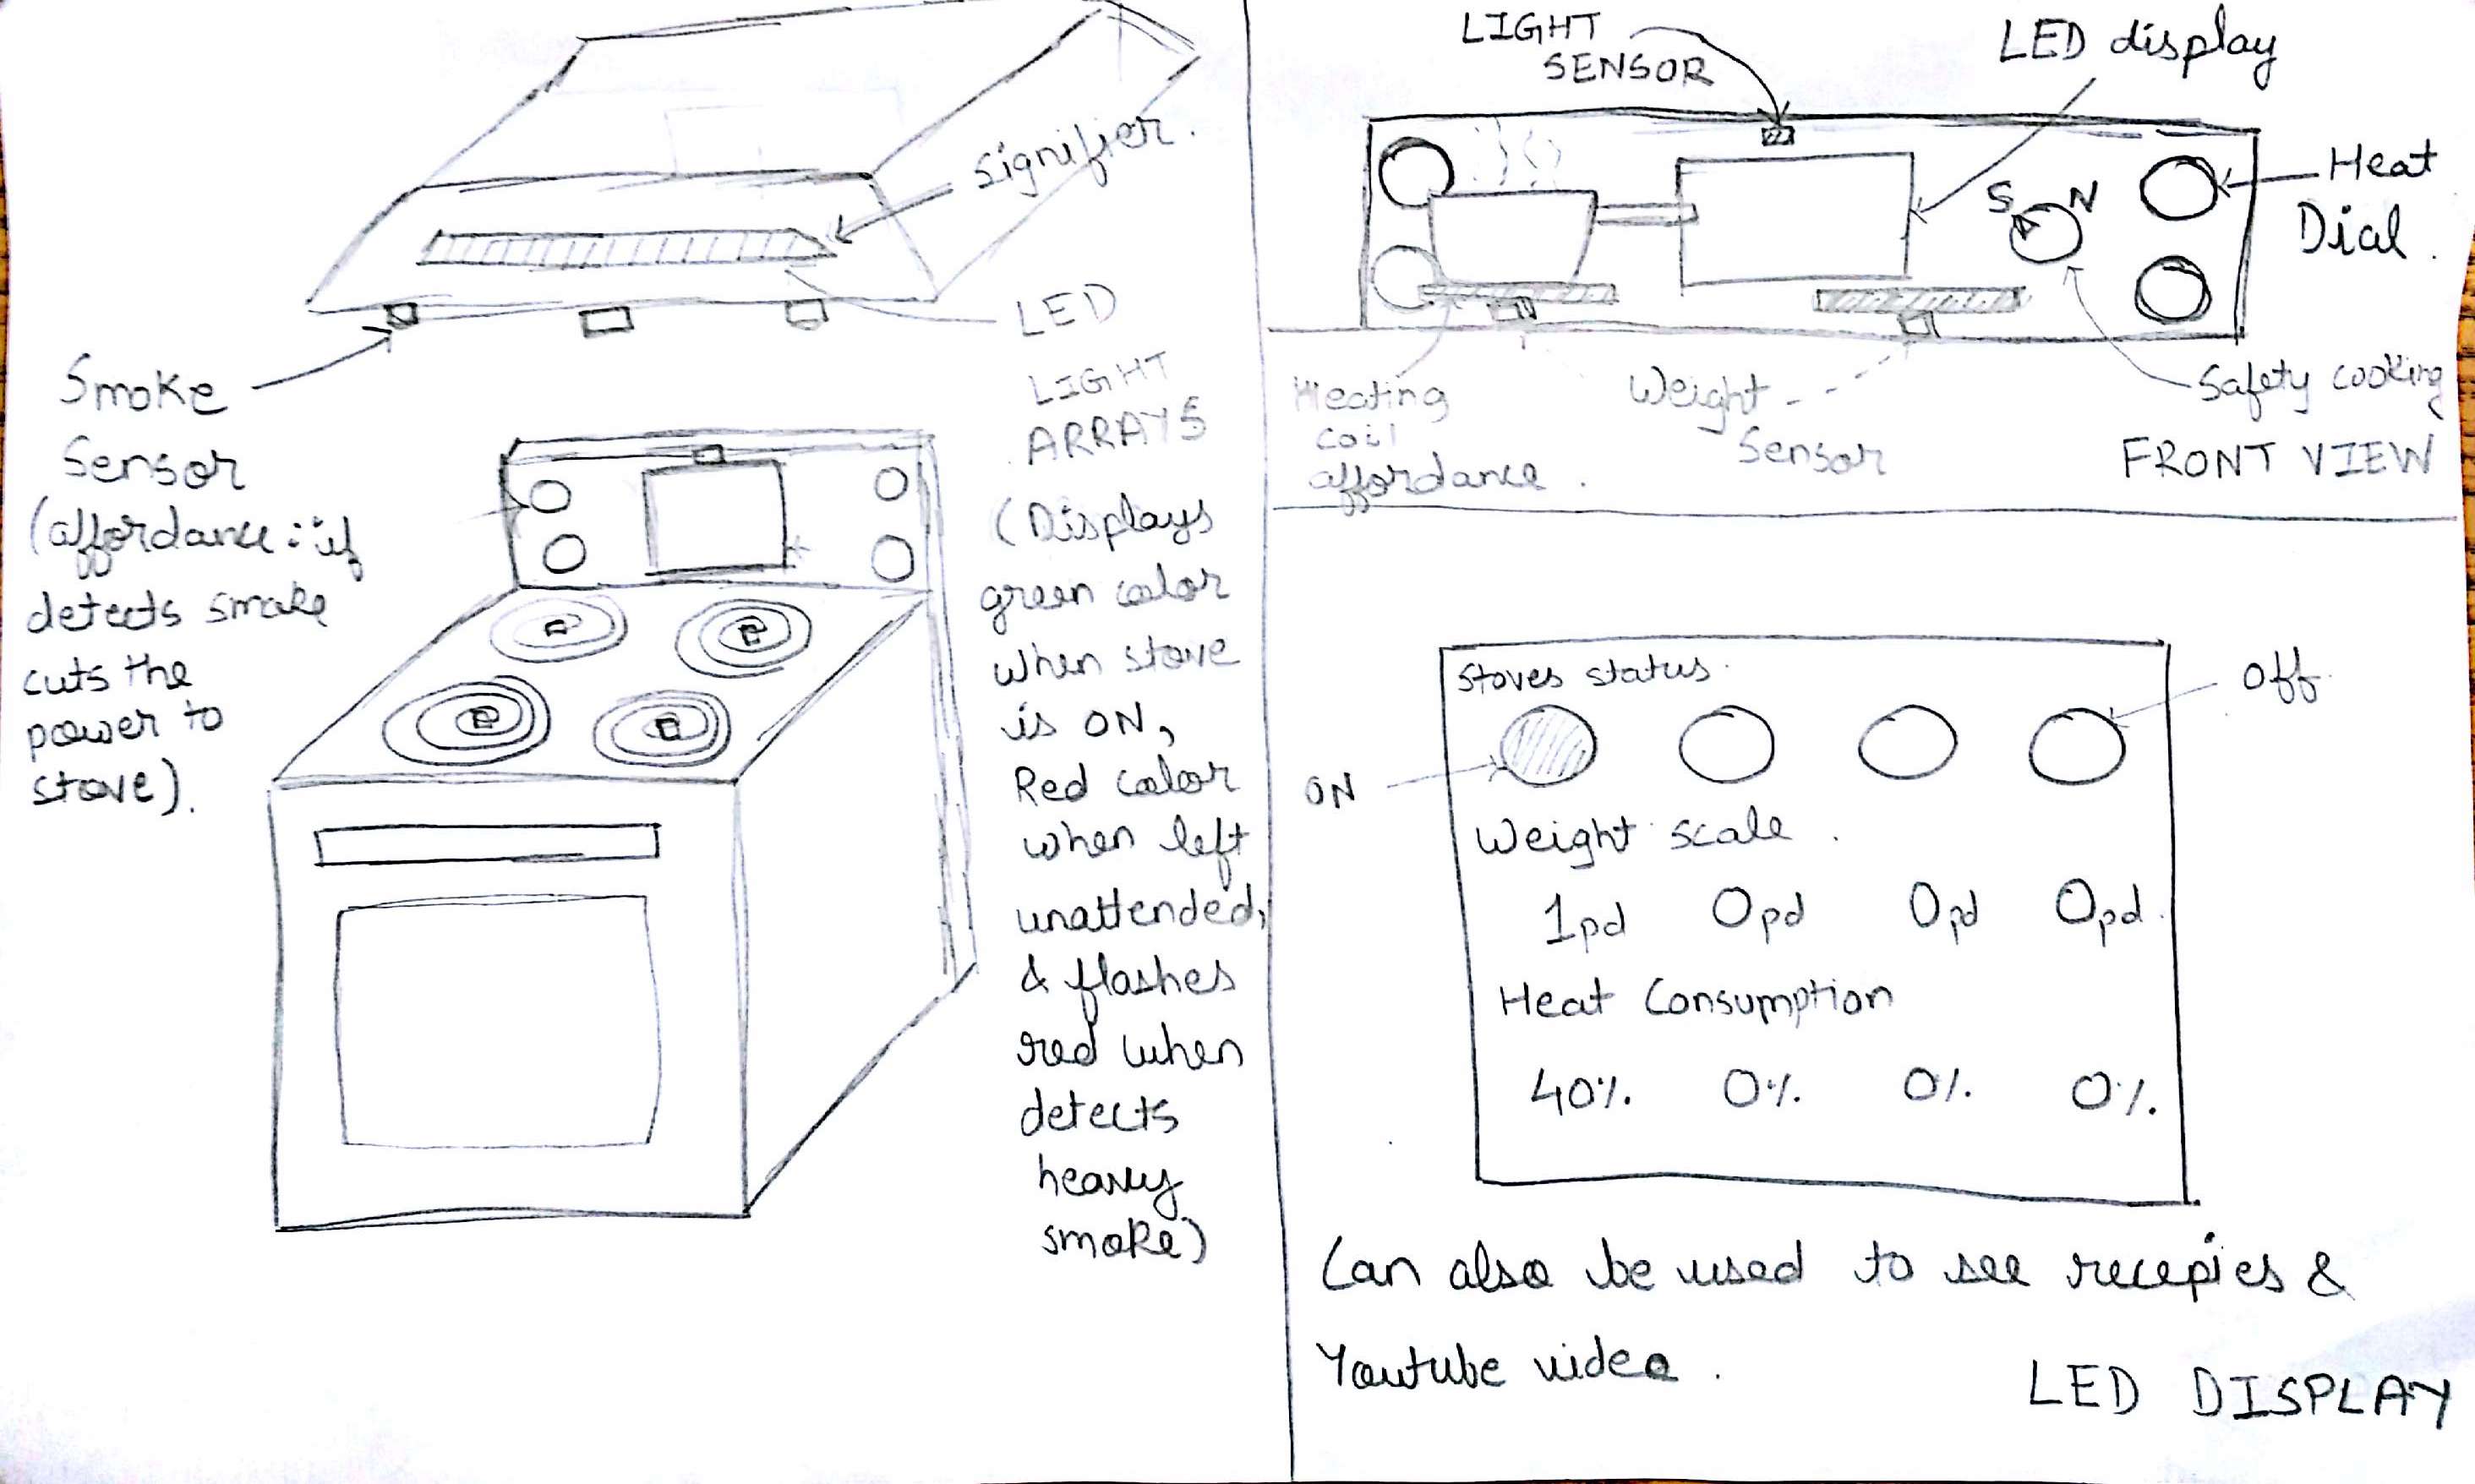 Signifier.
Smoke
Sensor
(affordance : if
detects smoke
cuts the
power to
stove).
LED
LIGHT
ARRAYS
(Displays
green color
when stove
is ON,
Red color
when left
unattended,
& flashes
red when
detects
heavy
smoke)
LIGHT
SENSOR
LED display
Heat
Dial.
S N
Heating
coil
affordance.
Weight
Sensor
Safety cooking
FRONT VIEW
Stoves status.
Off
ON
Weight scale.
1pd 0pd 0pd 0pd.
Heat Consumption
40% 0% 0% 0%
Can also be used to see recepies &
Youtube video.
LED DISPLAY